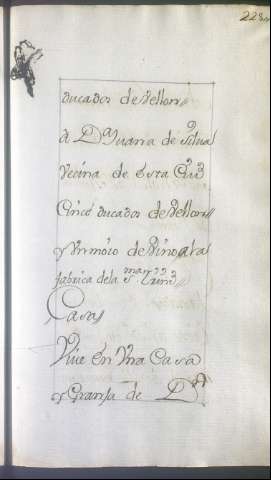 228
ducados de Vellon
a Dª Juana de Silva
Vecina de esta Ciud
Cinco ducados de Vellon
y Un moio de Vino a la
fabrica de la
Casas
Vive en Una Casa
y Granja de Dn